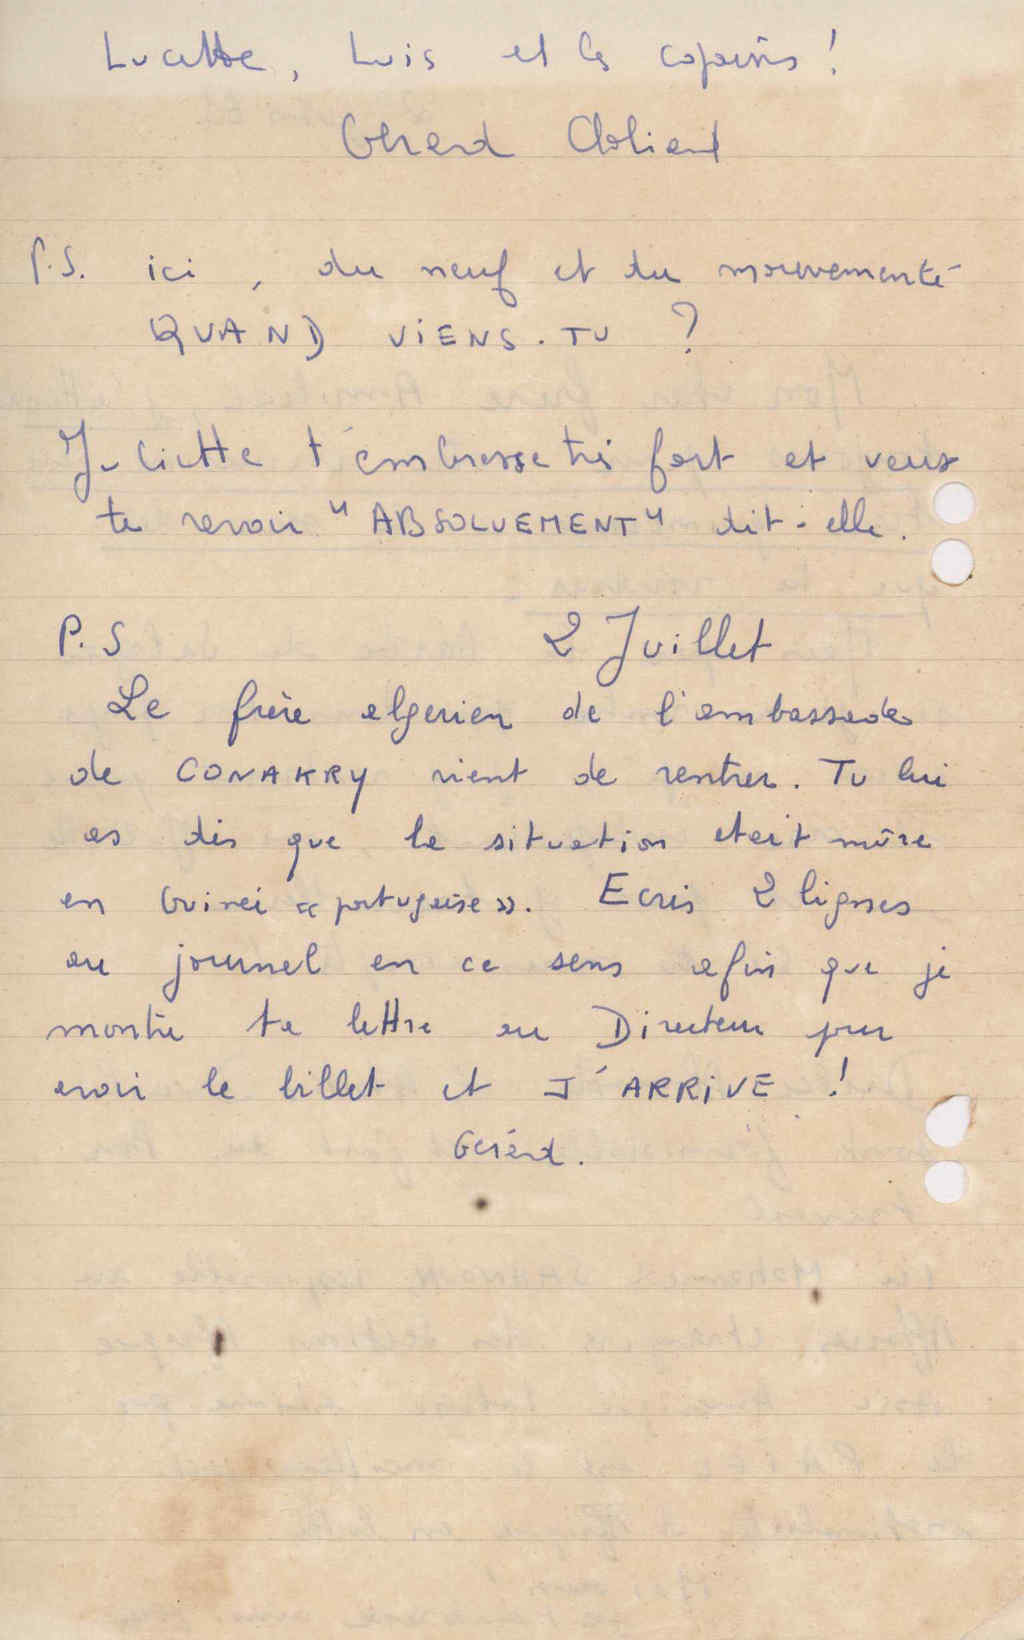 Lucette, Luis et les copains !
Gérard Chaliand
P.S. ici, du neuf et du mouvementé
QUAND VIENS-TU ?
Juliette t'embrasse très fort et veut
te revoir "ABSOLUEMENT" dit-elle.
P.S 2 Juillet
Le frère algerien de l'ambassade
de CONAKRY vient de rentrer. Tu lui
as dis que la situation etait mûre
en Guinei « portugaise ». Ecris 2 lignes
au journal en ce sens afin que je
montre ta lettre au Directeur pour
avoir le billet et J'ARRIVE !
Gérard.